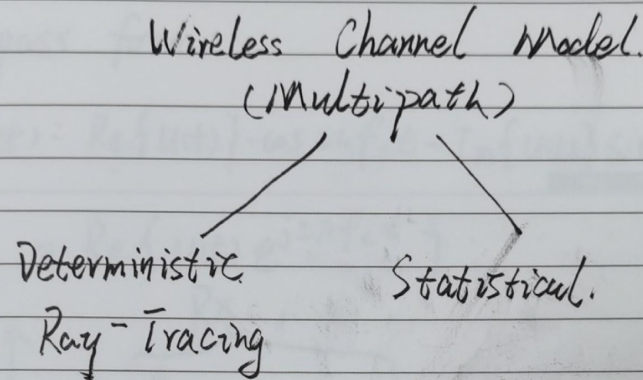 Wireless Channel Model.
(Multipath)
Deterministic
Ray-Tracing
Statistical.